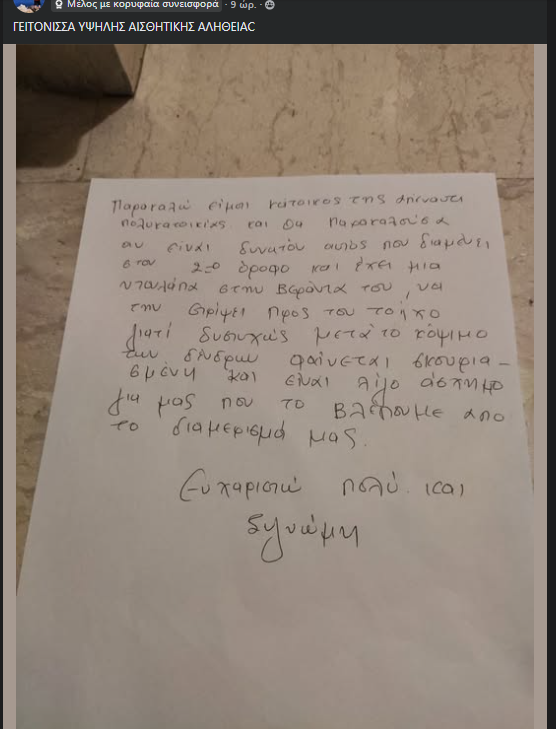 Μέλος με κορυφαία συνεισφορά · 9 ώρ. ·
ΓΕΙΤΟΝΙΣΣΑ ΥΨΗΛΗΣ ΑΙΣΘΗΤΙΚΗΣ ΑΛΗΘΕΙΑC
Παρακαλώ είμαι κάτοικος της απέναντι
πολυκατοικίας και θα παρακαλούσα
αν είναι δυνατόν αυτός που διαμένει
στον 2-ο όροφο και έχει μια
ντουλάπα στην βεράντα του, να
την στρίψει προς τον τοίχο
γιατί δυστυχώς μετά το κόψιμο
των δένδρων φαίνεται σκουρια-
σμένη και είναι λίγο άσχημο
για μας που το βλέπουμε απο
το διαμερισμά μας.
Ευχαριστώ πολύ και
συγνώμη